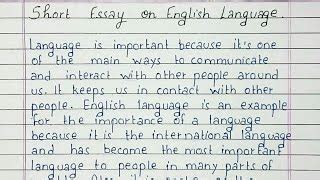 Short Essay on English Language.
Language is important because it's one
of the main ways to communicate
and interact with other people around
us. It keeps us in contact with other
people. English language is an example
for the importance of a language
because it is the international language
and has become the most important
language to people in many parts of